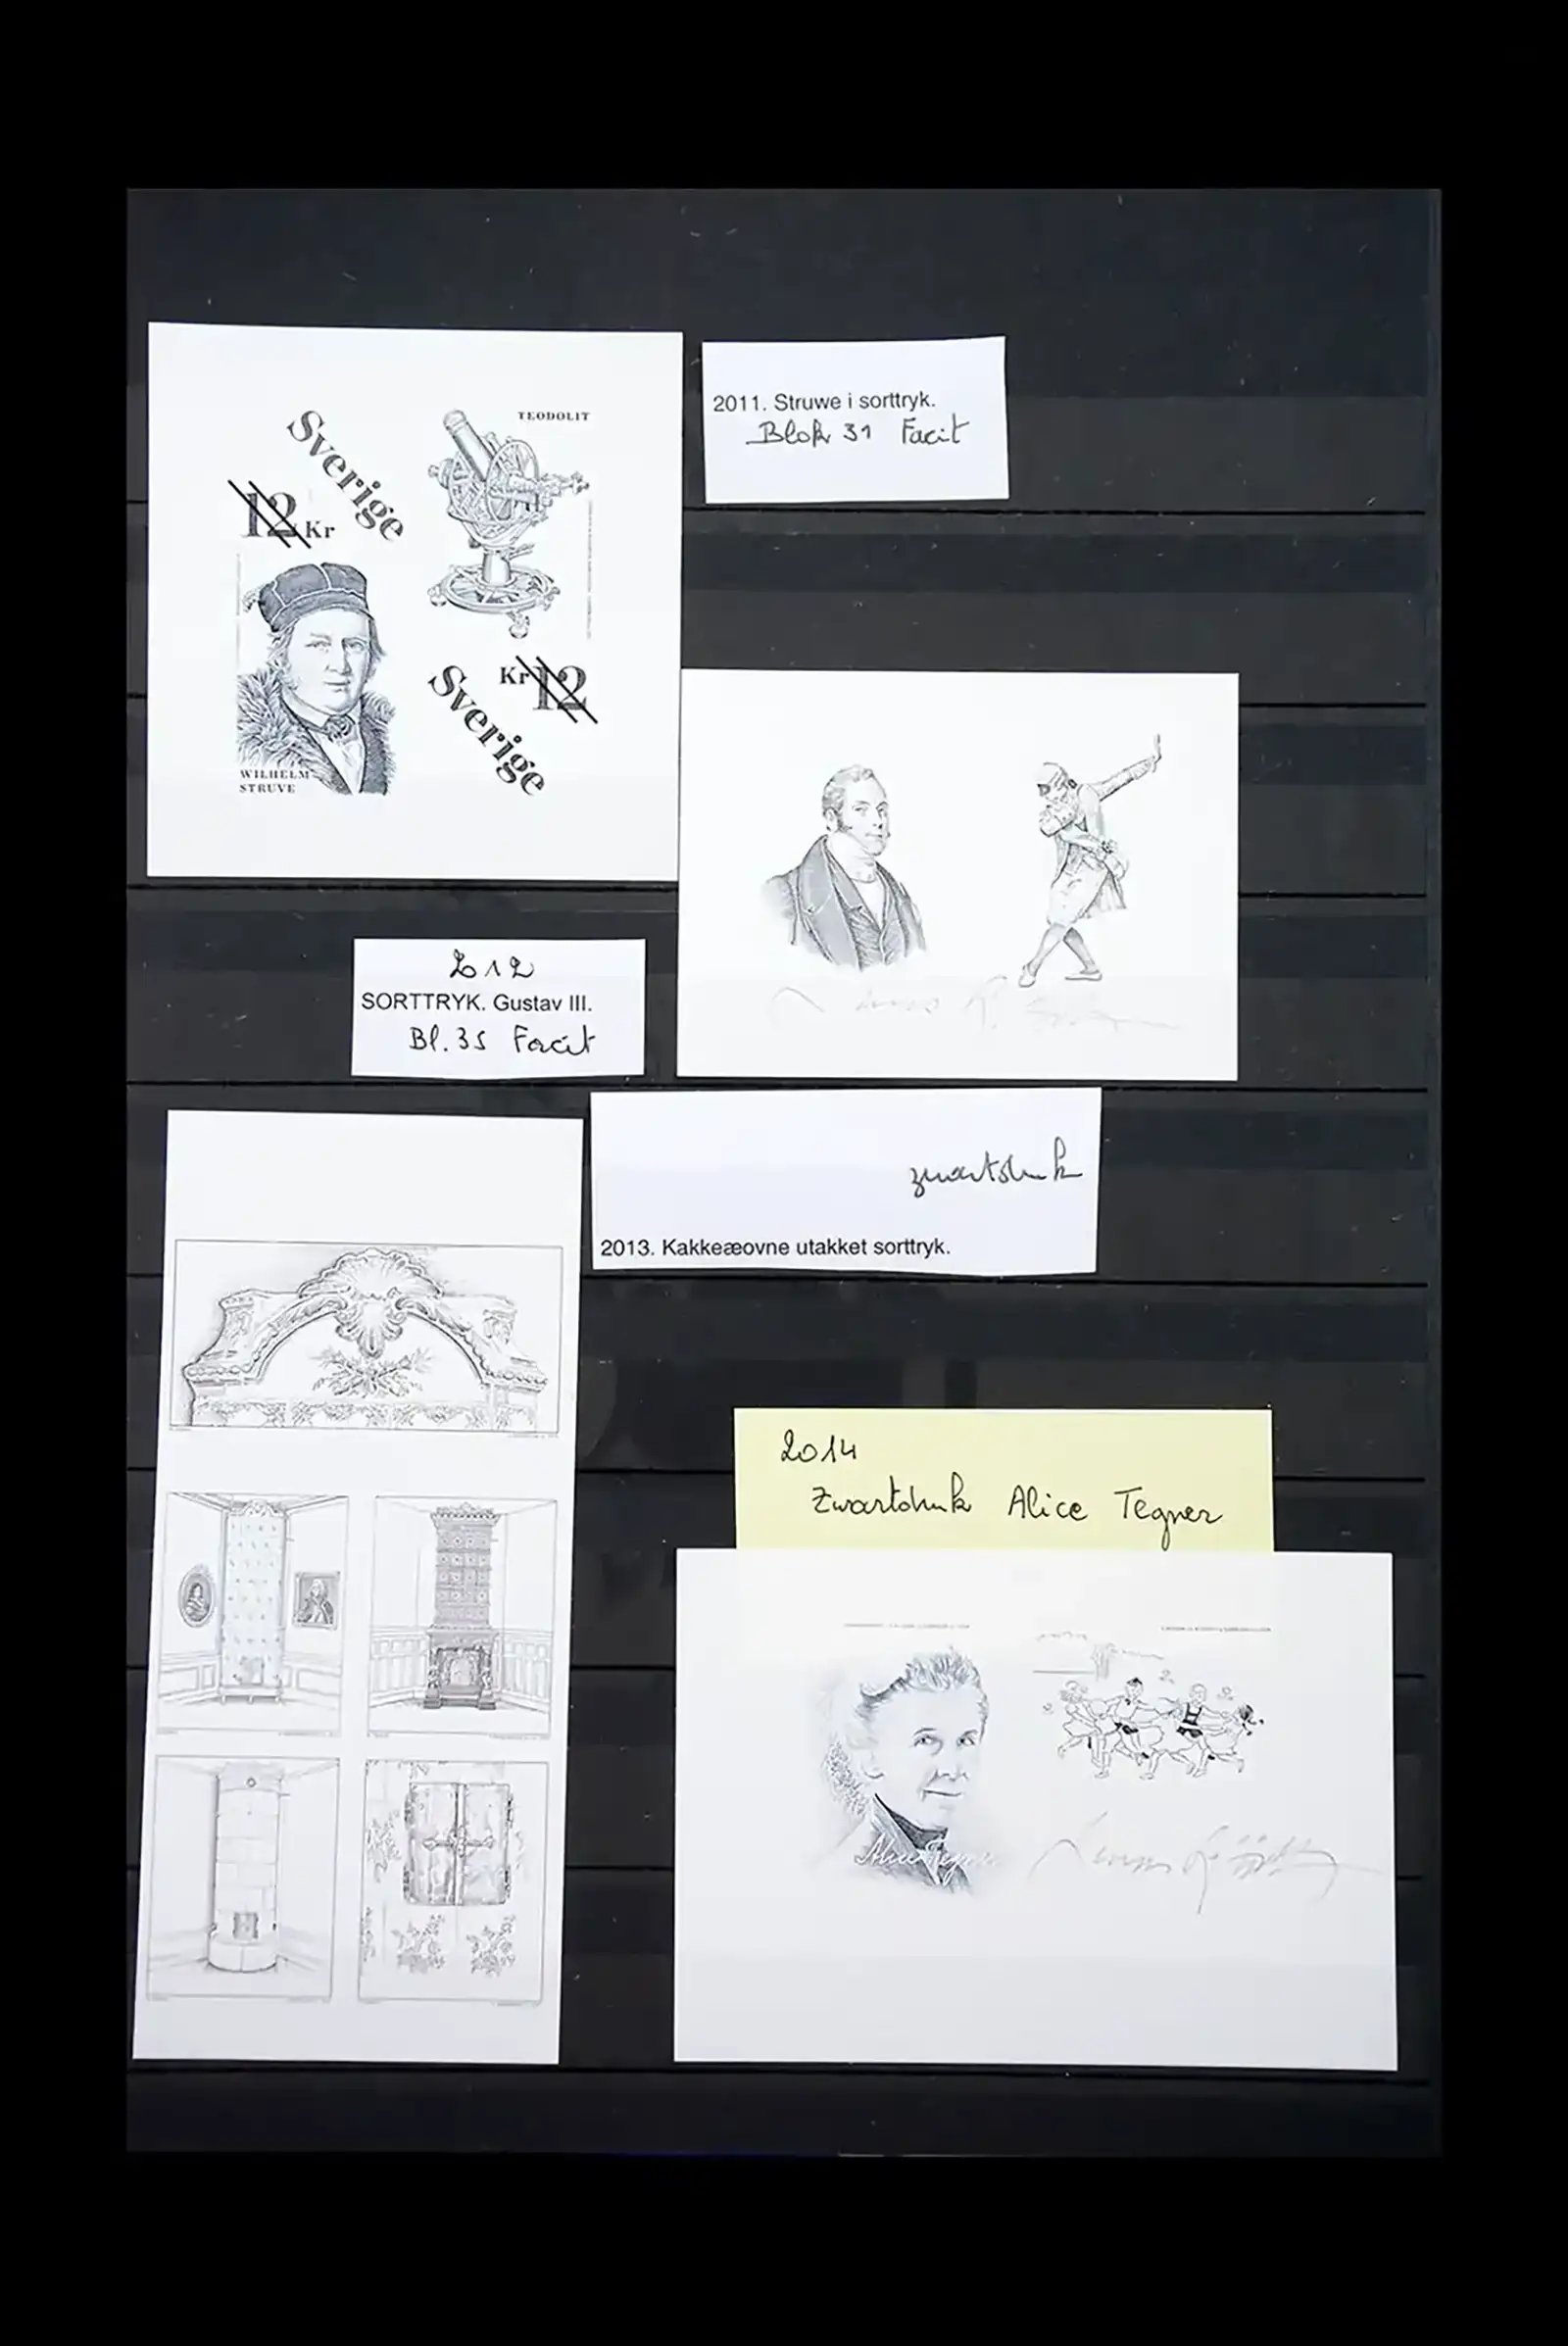 Sverige
12 Kr
TEODOLIT
WILHELM
STRUVE
Kr 12
Sverige
2011. Struwe i sorttryk.
Blok 31 Facit
2012
SORTTRYK. Gustav III.
Bl. 35 Facit
zwartdruk
2013. Kakkeæovne utakket sorttryk.
2014
Zwartdruk Alice Tegner
Alice Tegnér